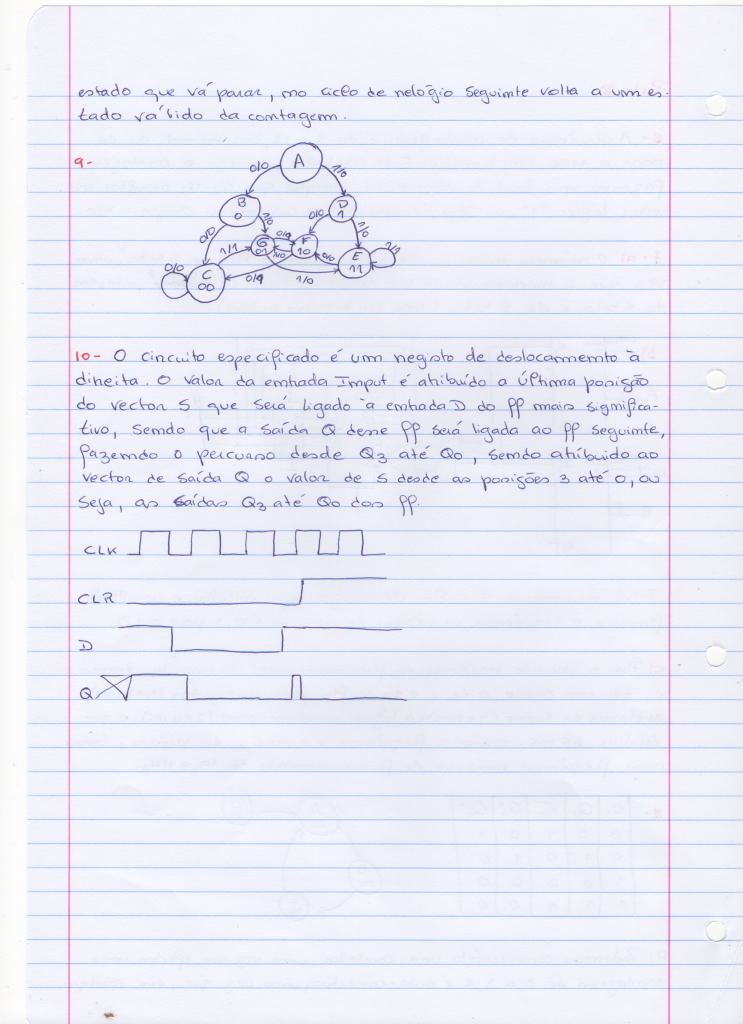 estado que vá parar, no ciclo de relógio seguinte volta a um es-
tado válido da contagem.
9-
A
0/0 1/0
B
0
D
1
0/0 1/0 0/0 1/0
G
01
F
10
E
11
C
00
0/0 1/1 1/0 0/0 1/0 1/1
10- O circuito especificado é um registo de deslocamento à
direita. O valor da entrada Input é atribuído a última posição
do vector S que será ligado à entrada D do ff mais significa-
tivo, sendo que a saída Q desse ff será ligada ao ff seguinte,
fazendo o percurso desde Q3 até Q0, sendo atribuído ao
vector de saída Q o valor de S desde as posições 3 até 0, ou
seja, as saídas Q3 até Q0 dos ff.
CLK
CLR
D
Q